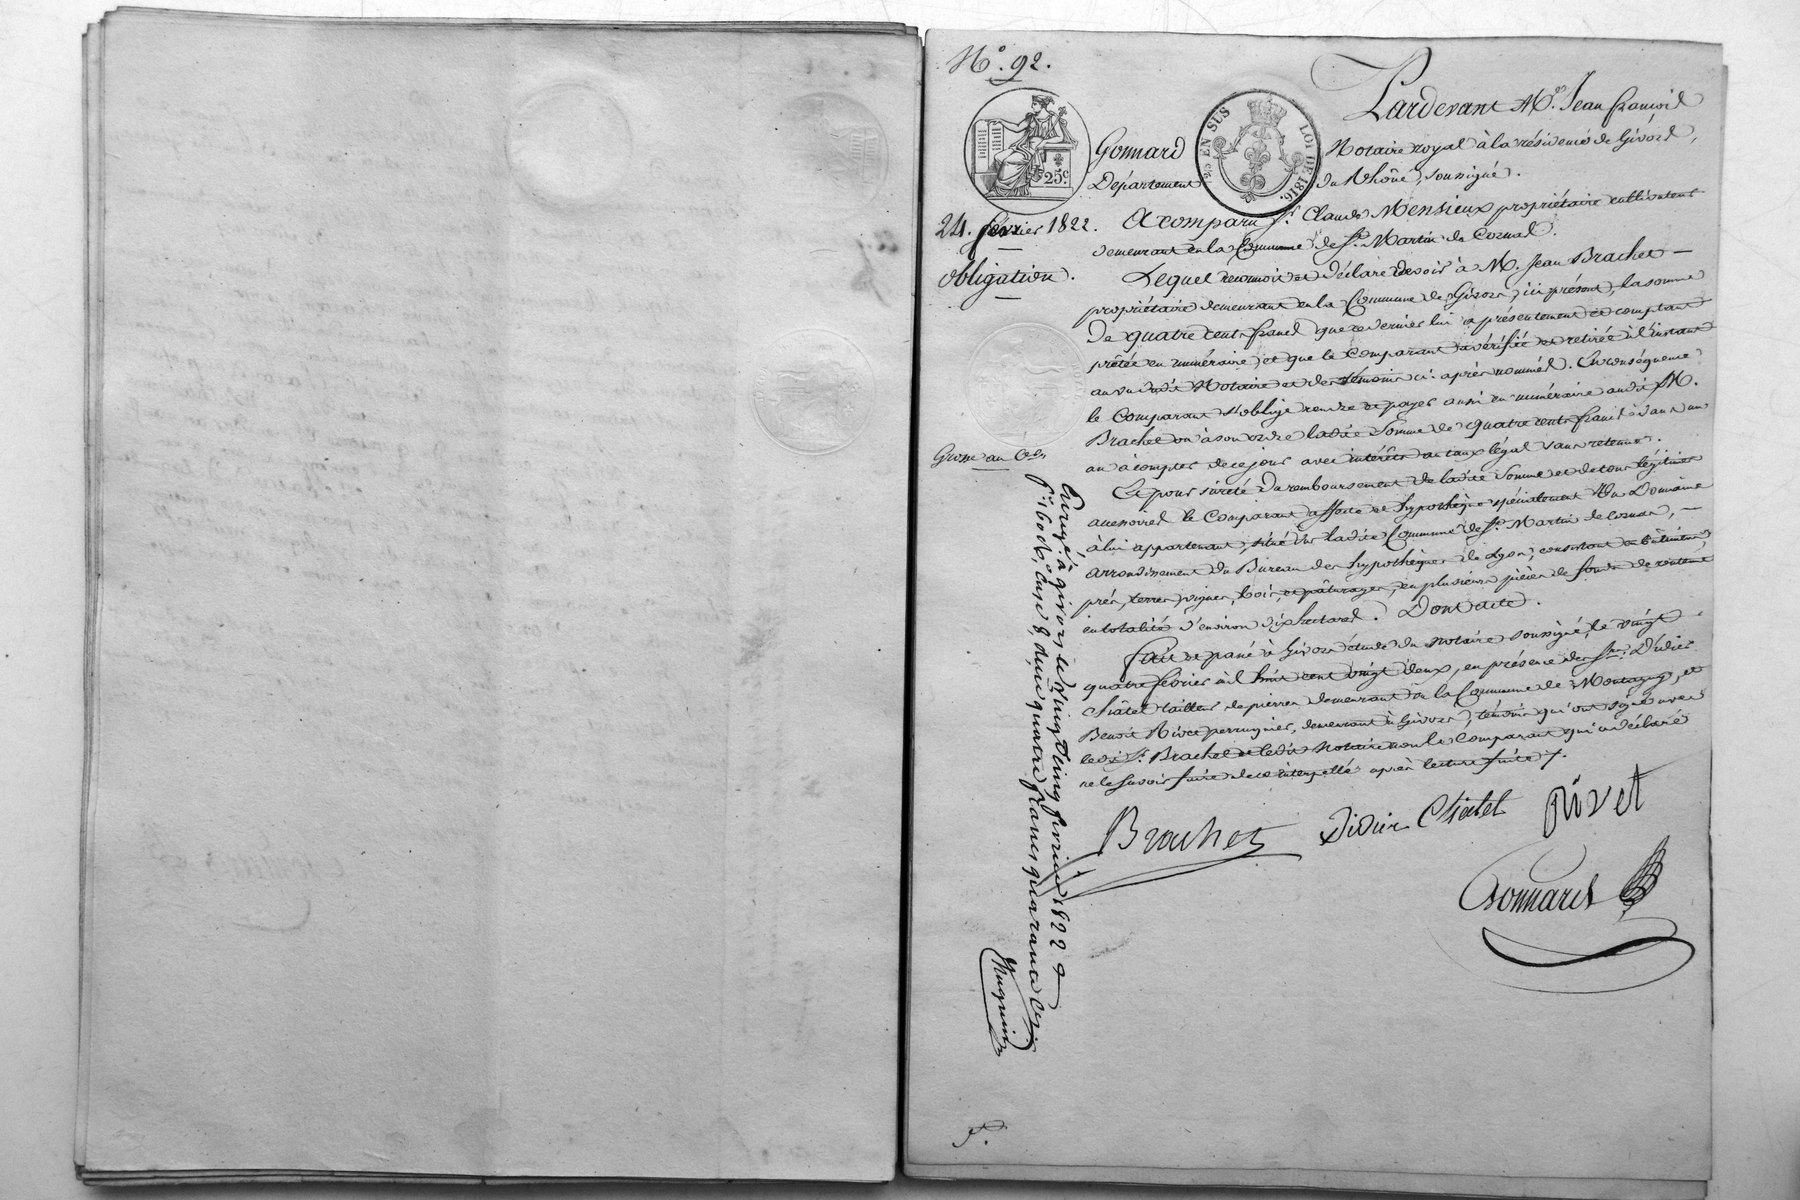 N.° 92.
25.c
25 EN SUS LOI DE 1816.
Pardevant M.e Jean françois
Gonnard Notaire royal à la résidence de Givors,
Département du Rhône, soussigné.
24. février 1822.
obligation.
A comparu S.r Claude Mensieux propriétaire cultivateur
demeurant en la Commune de S.t Martin de Cornas.
Lequel reconnoit et déclare devoir à M. Jean Brachet —
propriétaire demeurant en la Commune de Givors, ici présent, la somme
De quatre cents francs que ce dernier lui a présentement et comptant
prêtée en numéraire, et que le Comparant a vérifiée et retirée à l'instant
au vu dudit Notaire et des témoins ci-après nommés. En conséquence
le Comparant s'oblige rendre et payer aussi en numéraire audit M.
Brachet ou à son ordre ladite Somme de quatre cents francs dans un
an à compter de ce jour avec intérêts au taux légal sans retenue.
Grosse au C.er
Et pour sûreté du remboursement de ladite Somme et de tous légitimes
accessoires le Comparant affecte et hypothèque spécialement Un Domaine
à lui appartenant, situé sur ladite Commune de S.t Martin de Cornas, —
arrondissement du Bureau des hypothèques de Lyon, consistant en bâtiments,
prés, terres, vignes, bois, et pâturages, en plusieurs pièces de fonds de contenue
en totalité d'environ dix hectares. Dont acte.
fait et passé à Givors étude du notaire soussigné, le vingt
quatre février mil huit cent vingt deux, en présence des S.rs Didier
Châtel tailleur de pierres demeurant en la Commune de Montagny, et
Benoit Rivet perruquier, demeurant à Givors, témoins qui ont signé avec
ledit S.r Brachet et ledit notaire non le Comparant qui a déclaré
ne le savoir faire de ce interpellé après lecture faite /.
Brachet Didier Chatel Rivet
Gonnard
Enregé à givors le vingt cinq février 1822
f.° 160 v.°, case 8, deux quatre francs quarante c.es
Huguenin